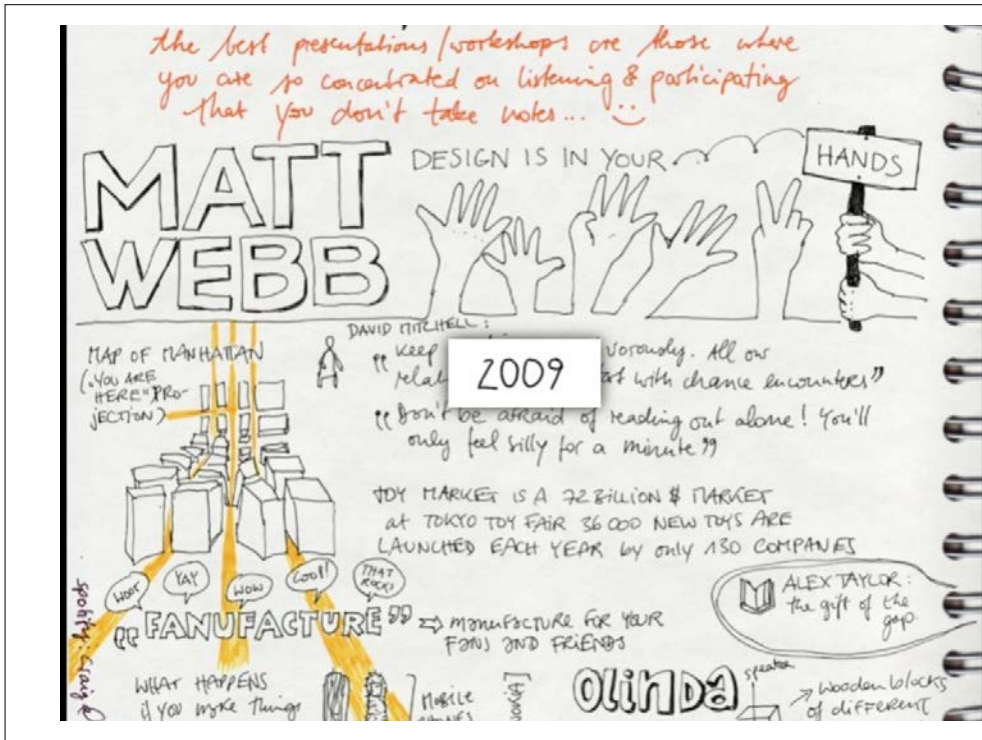 the best presentations/workshops are those where
you are so concentrated on listening & participating
that you don't take notes...
MATT
WEBB
DESIGN IS IN YOUR
HANDS
MAP OF MANHATTAN
("YOU ARE
HERE" PRO-
JECTION)
DAVID MITCHELL:
"Keep vorously. All our
with chance encounters"
2009
"Don't be afraid of reading out alone! You'll
only feel silly for a minute"
TOY MARKET IS A 72 BILLION $ MARKET
at TOKYO TOY FAIR 36 000 NEW TOYS ARE
LAUNCHED EACH YEAR by only 130 COMPANIES
WOOT
YAY
WOW
COOL!
THAT
ROCKS
"FANUFACTURE" ⇨ manufacture FOR YOUR
FANS AND FRIENDS
ALEX TAYLOR:
the gift of the
gap.
spotify: Craig
WHAT HAPPENS
if you make things
MOBILE
OLINDA
speaker
→ wooden blocks
of different